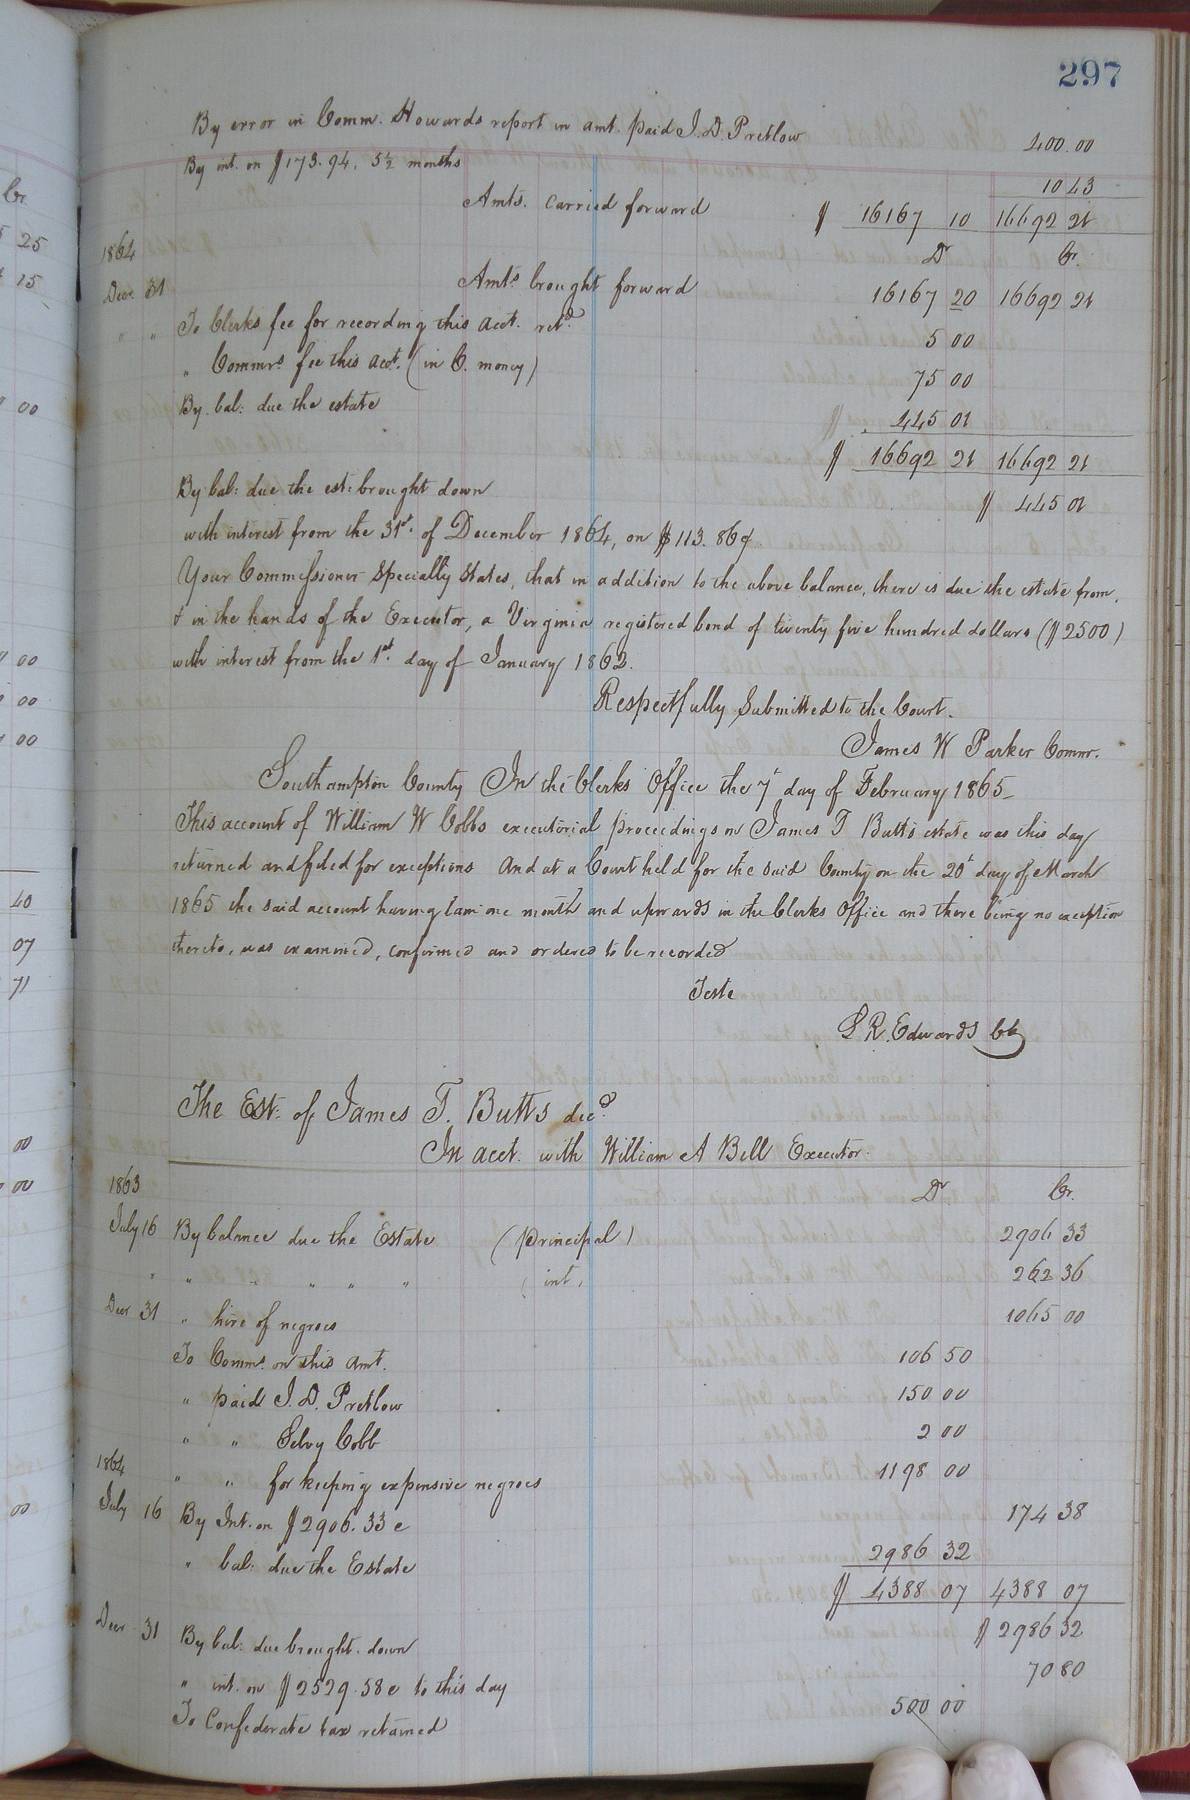 297
By error in Comm. Howards report in amt. paid J. D. Pretlow 400.00
By int. on $173.94, 5½ months 10 43
Amts. carried forward $ 16167 10 16692 21
Dr Cr.
1864
Decr 31 Amts. brought forward 16167 20 16692 21
" " To Clerks fee for recording this acct. retd. 5 00
" Commrs. fee this acct. (in C. money) 75 00
By bal: due the estate 445 01
$ 16692 21 16692 21
By bal: due the est: brought down $ 445 01
with interest from the 31st. of December 1864, on $113.86¢
Your Commissioner Specially States, that in addition to the above balance, there is due the estate from,
& in the hands of the Executor, a Virginia registered bond of twenty five hundred dollars ($2500)
with interest from the 1st. day of January 1862.
Respectfully Submitted to the Court.
James W Parker Commr.
Southampton County In the Clerks Office the 7t day of February 1865
This account of William W Cobbs executorial proceedings on James T Butts estate was this day
returned and filed for exceptions And at a Court held for the said County on the 20t day of March
1865 the said account having lain one month and upwards in the Clerks Office and there being no exception
thereto, was examined, confirmed and ordered to be recorded
Teste
L R. Edwards Clk
The Est: of James T. Butts decd.
In acct. with William A Bell Executor.
1863 Dr Cr.
July 16 By balance due the Estate (principal) 2906 33
" " " " " " (int, 262 36
Decr 31 " hire of negroes 1065 00
To Comms. on this amt. 106 50
" paid J. D. Pretlow 150 00
" " Selvy Cobb 2 00
" " for keeping expensive negroes 1198 00
1864
July 16 By Int. on $2906.33c 174 38
" bal: due the Estate 2986 32
$ 4388 07 4388 07
Decr 31 By bal: due brought down $ 2986 32
" int. on $2529.58c to this day 70 80
To Confederate tax retained 500 00
Cr
25
15
00
00
00
00
40
07
71
00
00
00